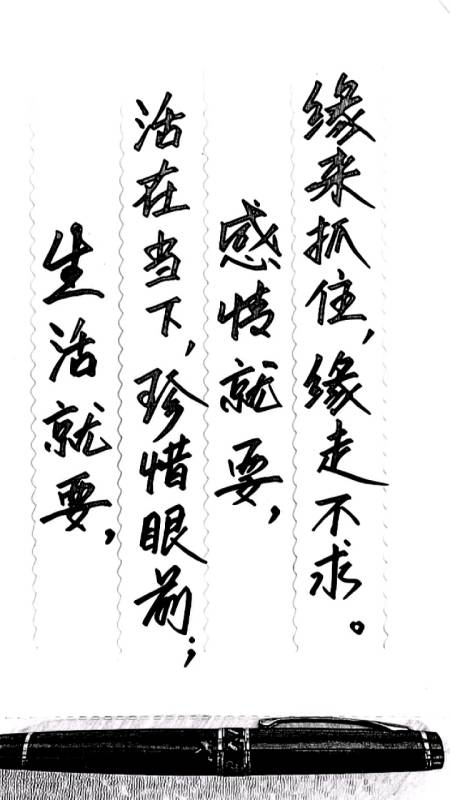 生活就要，
活在当下，珍惜眼前；
感情就要，
缘来抓住，缘走不求。